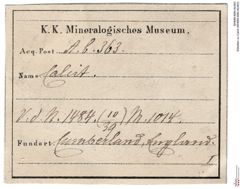 K. K. Mineralogisches Museum.
Acq. Post. A. b. 363.
Name: Calcit.
V. d. N. 1484. (10/39) M. 1014.
Fundort: Cumberland, England.
I